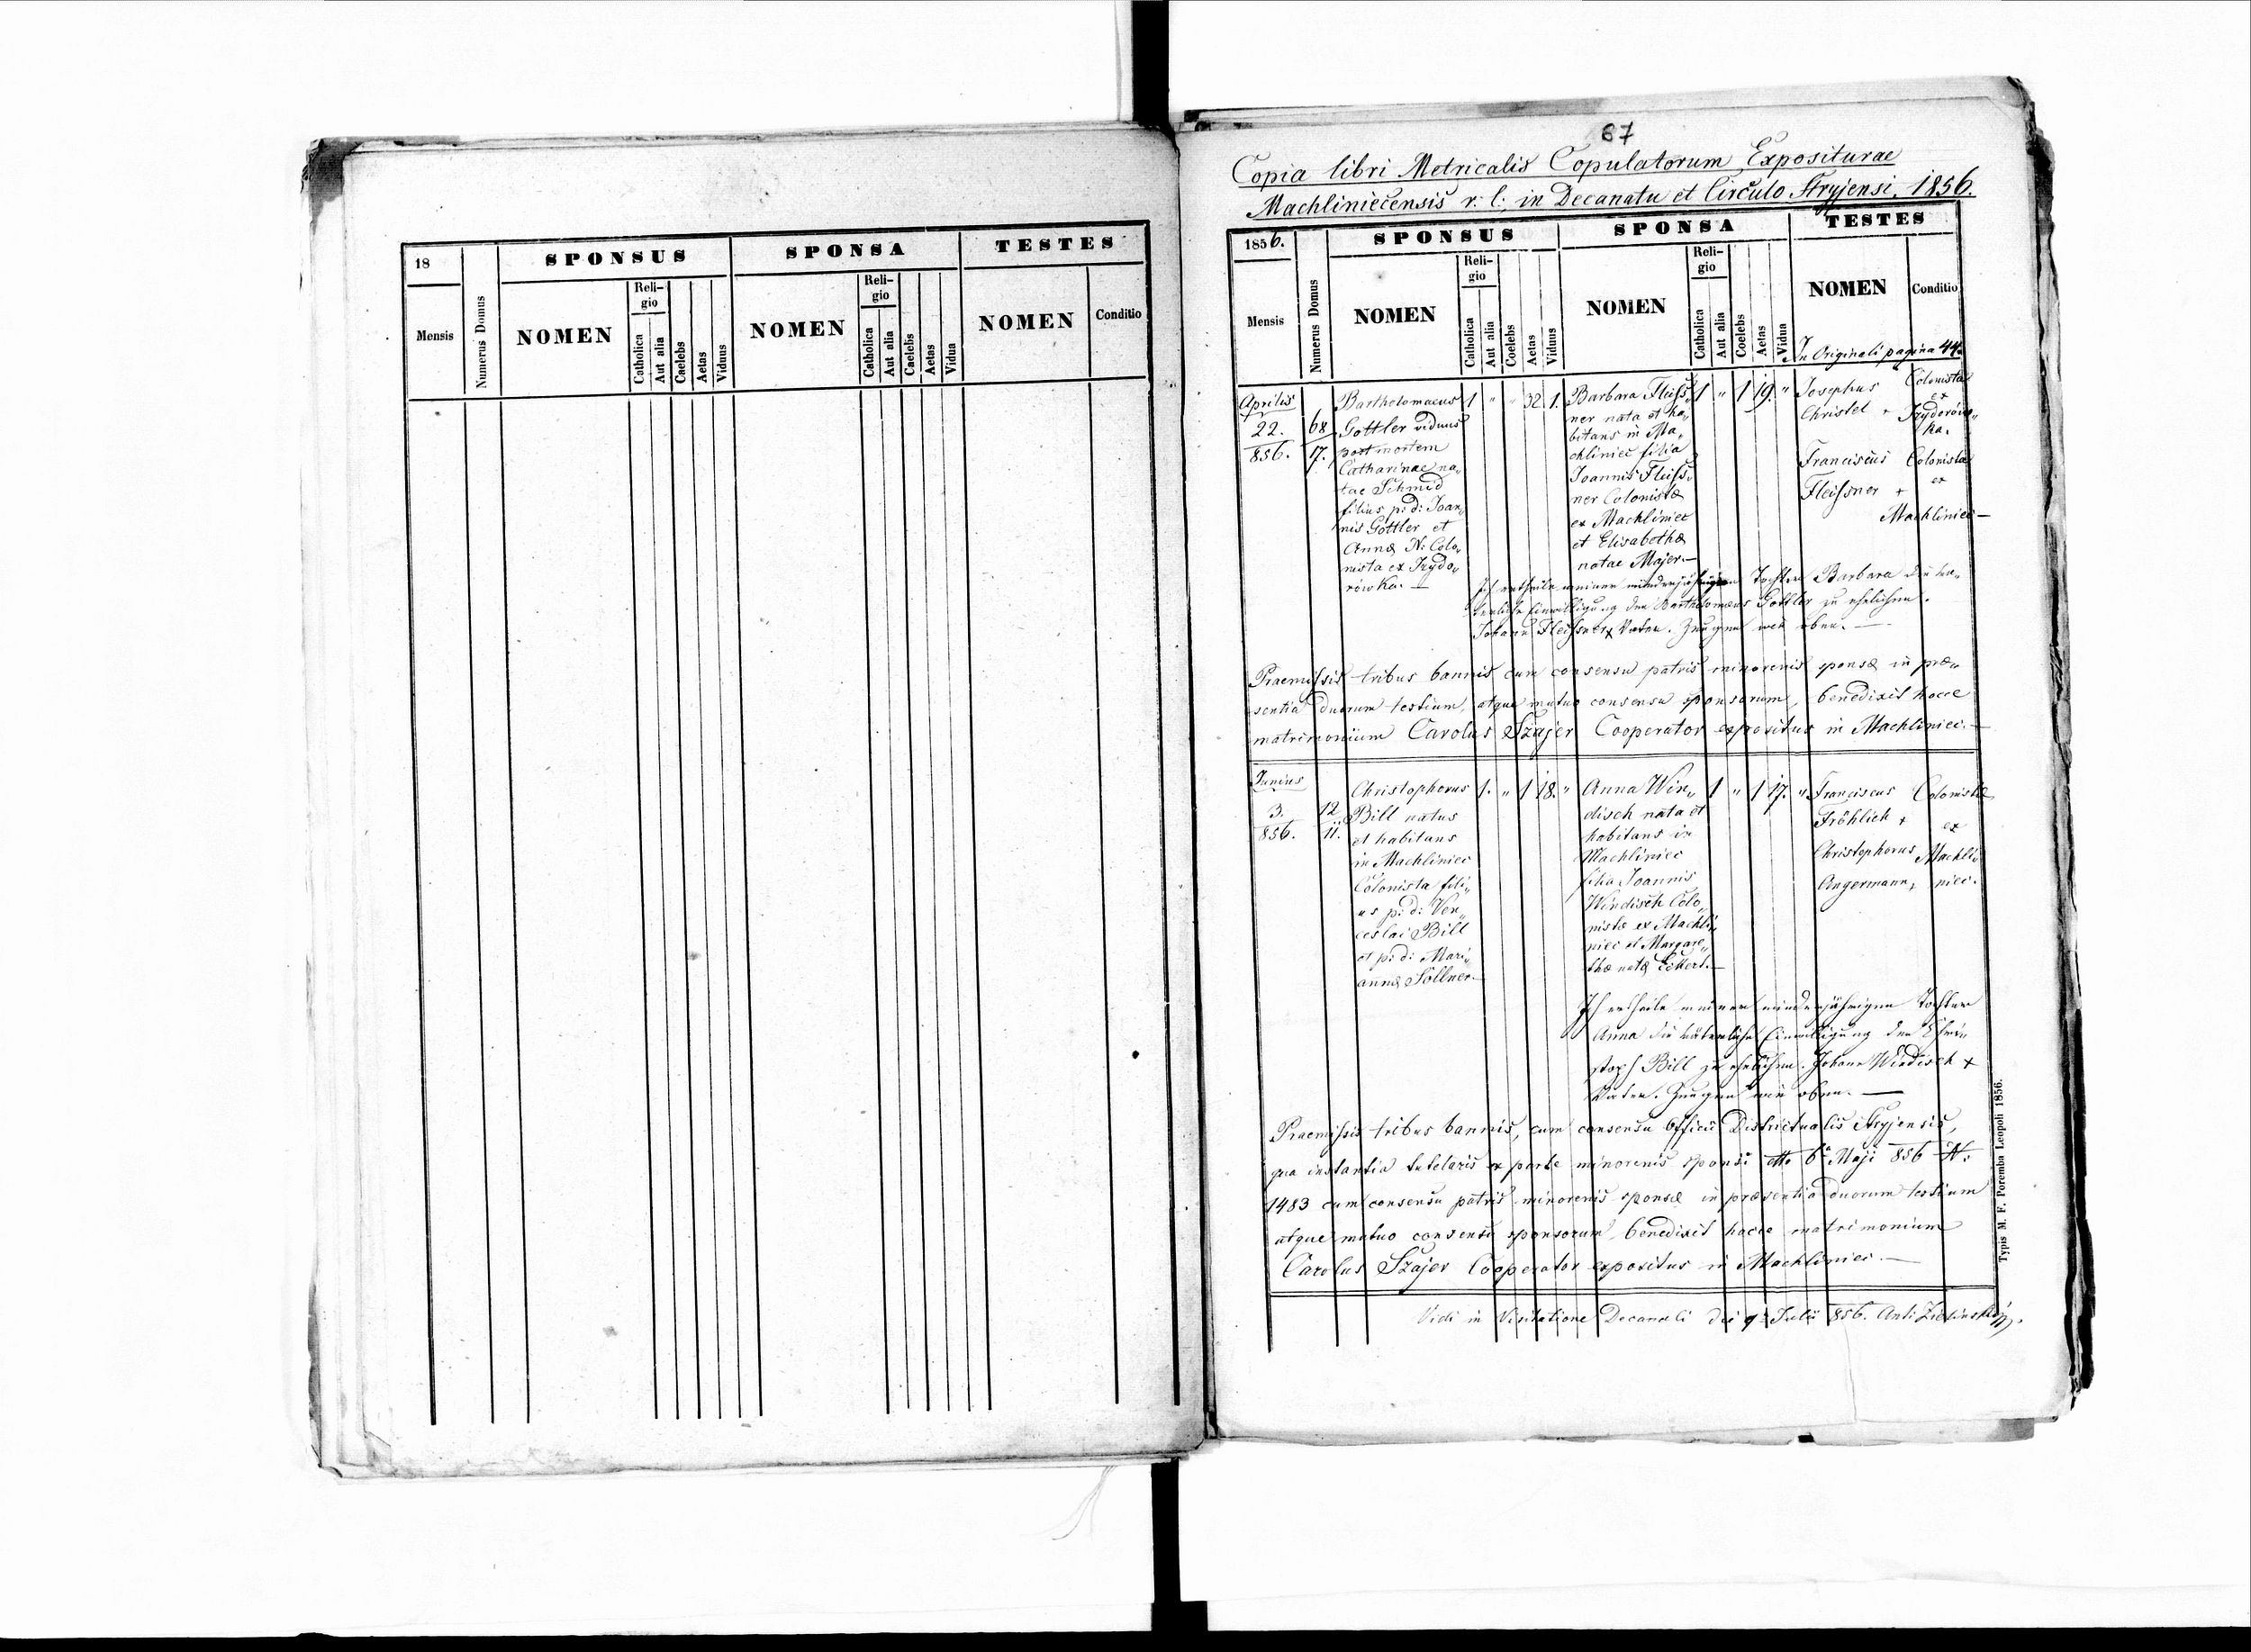 18
SPONSUS
SPONSA
TESTES
Mensis
Numerus Domus
NOMEN
Religio
Catholica
Aut alia
Caelebs
Aetas
Viduus
NOMEN
Religio
Catholica
Aut alia
Caelebs
Aetas
Vidua
NOMEN
Conditio
67
Copia libri Metricalis Copulatorum Expositurae
Machliniecensis r: l: in Decanatu et Circulo Stryjensi. 1856.
1856.
SPONSUS
SPONSA
TESTES
Mensis
Numerus Domus
NOMEN
Reli-
gio
Catholica
Aut alia
Coelebs
Aetas
Viduus
NOMEN
Reli-
gio
Catholica
Aut alia
Coelebs
Aetas
Vidua
NOMEN
Conditio
In Originali pagina 44.
Aprilis
22.
856.
68
17.
Bartholomaeus
Gottler viduus
post mortem
Catharinae na„
tae Schmid
filius p: d: Joan„
nis Gottler et
Annæ N: Colo„
nista ex Izydo„
rówka. —
1 „ „ 32 1.
Barbara Fleiss„
ner nata et ha„
bitans in Ma„
chliniec filia
Joannis Fleiss„
ner Colonistæ
ex Machliniec
et Elisabethæ
natae Majer. —
1 „ 1 19. „
Josephus
Christel +
Colonista
ex
Izydorów„
ka.
Franciscus
Fleissner +
Colonista
ex
Machliniec —
Ich ertheile meiner minderjährigen Tochter Barbara die vä„
terliche Einwilligung den Bartholomæus Gottler zu ehelichen.
Johann Fleissner + Vater. Zeugen wie oben. —
Praemissis tribus bannis, cum consensu patris minorenis sponsæ in præ„
sentia duorum testium, atque mutuo consensu sponsorum, benedixit hocce
matrimonium Carolus Szajer Cooperator expositus in Machliniec. —
Junius
3.
856.
12
11.
Christophorus
Bill natus
et habitans
in Machliniec
Colonista fili„
us p: d: Ven„
ceslai Bill
et p: d: Mari„
annæ Söllner. —
1. „ 1 18. „
Anna Win„
disch nata et
habitans in
Machliniec
filia Joannis
Windisch Colo„
nistæ ex Machli„
niec et Margare„
thæ natæ Eckert. —
1 „ 1 17. „
Franciscus
Fröhlich +
Christophorus
Angermann +
Colonistæ
ex
Machli„
niec.
Ich ertheile meiner minderjährigen Tochter
Anna die väterliche Einwilligung den Chri„
stoph Bill zu ehelichen. Johann Windisch +
Vater. Zeugen wie oben. —
Praemissis tribus bannis, cum consensu Officii Districtualis Stryjensis,
qua instantia tutelaris ex parte minorenis sponsi dto 6ª Maji 856 N:
1483 cum consensu patris minorenis sponsæ in præsentia duorum testium
atque mutuo consensu sponsorum, benedixit hocce matrimonium
Carolus Szajer Cooperator expositus in Machliniec. —
Vidi in Visitatione Decanali die 9ª Julii 856.
Typis M. F. Poremba Leopoli 1856.